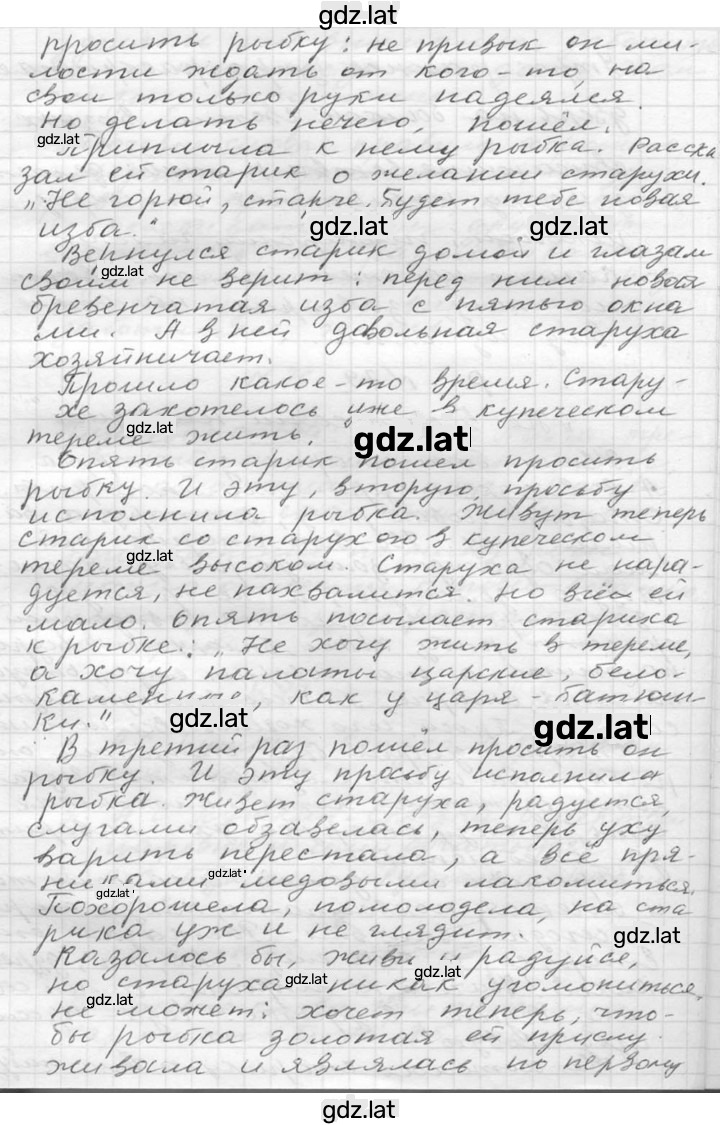 gdz.lat
просить рыбку: не привык он ми-
лости ждать от кого-то, на
свои только руки надеялся.
Но делать нечего, пошёл.
gdz.lat
Приплыла к нему рыбка. Расска
зал ей старик о желании старухи.
„Не горюй, старче. Будет тебе новая
изба."
gdz.lat
gdz.lat
Вернулся старик домой и глазам
своим не верит: перед ним новая
gdz.lat
бревенчатая изба с пятью окна
ми. А в ней довольная старуха
хозяйничает.
Прошло какое-то время. Стару-
хе захотелось уже в купеческом
gdz.lat
тереме жить.
gdz.lat
Опять старик пошёл просить
рыбку. И эту, вторую, просьбу
исполнила рыбка. Живут теперь
старик со старухою в купеческом
gdz.lat
тереме высоком. Старуха не нара-
дуется, не нахвалится. Но всё ей
мало. Опять посылает старика
к рыбке: „Не хочу жить в тереме,
а хочу палаты царские, бело-
каменные, как у царя-батюш-
ки."
gdz.lat
gdz.lat
В третий раз пошёл просить он
рыбку. И эту просьбу исполнила
рыбка. Живёт старуха, радуется,
слугами обзавелась, теперь уху
варить перестала, а всё пря-
никами медовыми лакомиться.
gdz.lat
gdz.lat
Похорошела, помолодела, на ста
рика уж и не глядит.
gdz.lat
Казалось бы, живи и радуйся,
но старуха никак угомониться
gdz.lat
gdz.lat
не может: хочет теперь, что-
gdz.lat
бы рыбка золотая ей прислу-
живала и являлась по первому
gdz.lat